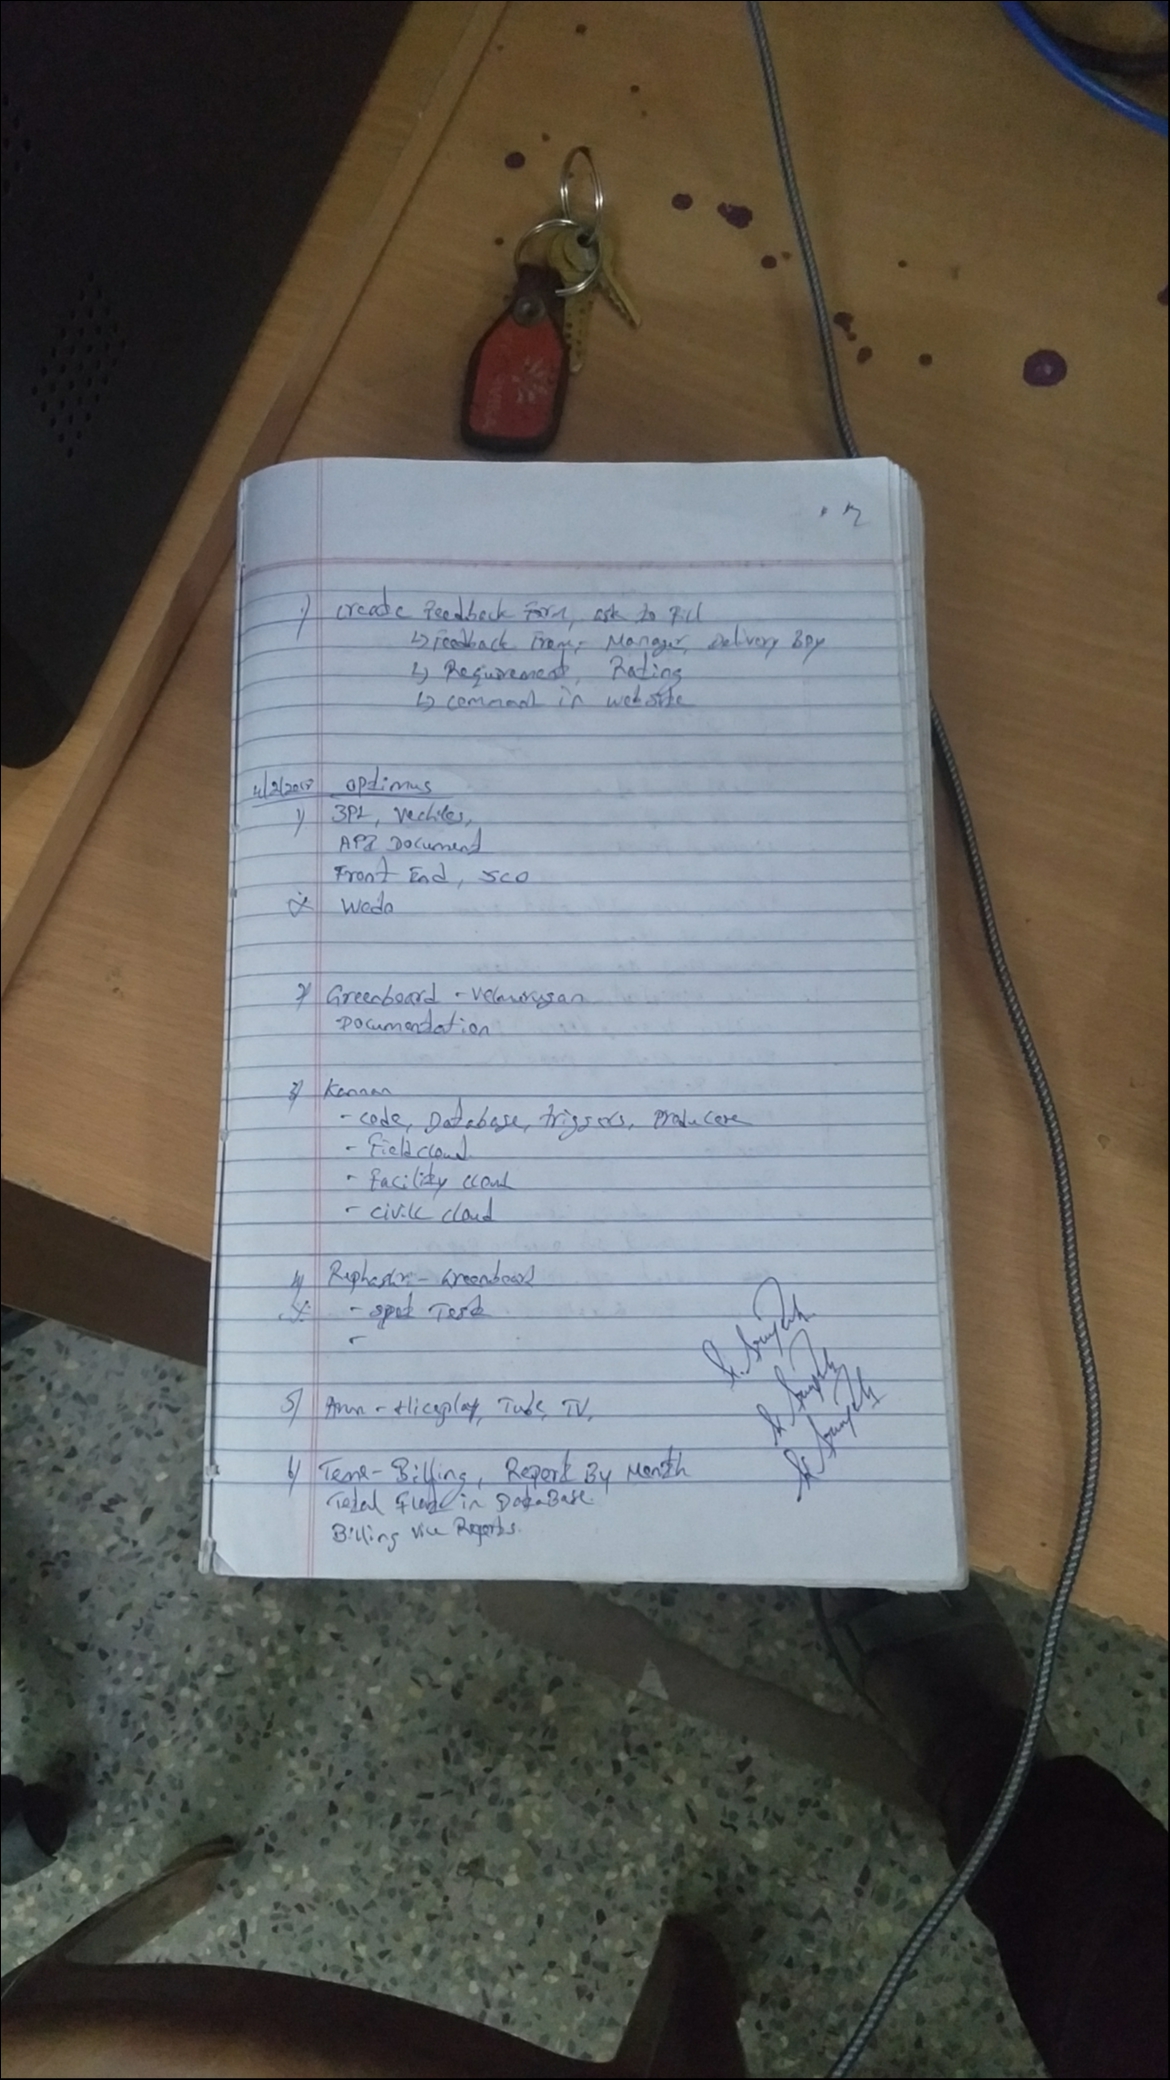 1) Create Feedback Form, ask to Fill
↳ Feedback From:- Manager, Delivery Boy
↳ Requirement, Rating
↳ comment in website
Optimus
1) 3PL, Vechiles,
API Document
Front End, SCO
Wedo
2) Greenboard - Velmurugan
Documentation
3) Kannan
- code, Database, triggers, Producere
- Field cloud
- Facility cloud
- civic cloud
4) Greenboard
- spot Test
-
5) Arun - Tube, TV,
6) Billing, Report By Month
Total in DataBase
Billing vice Reports.